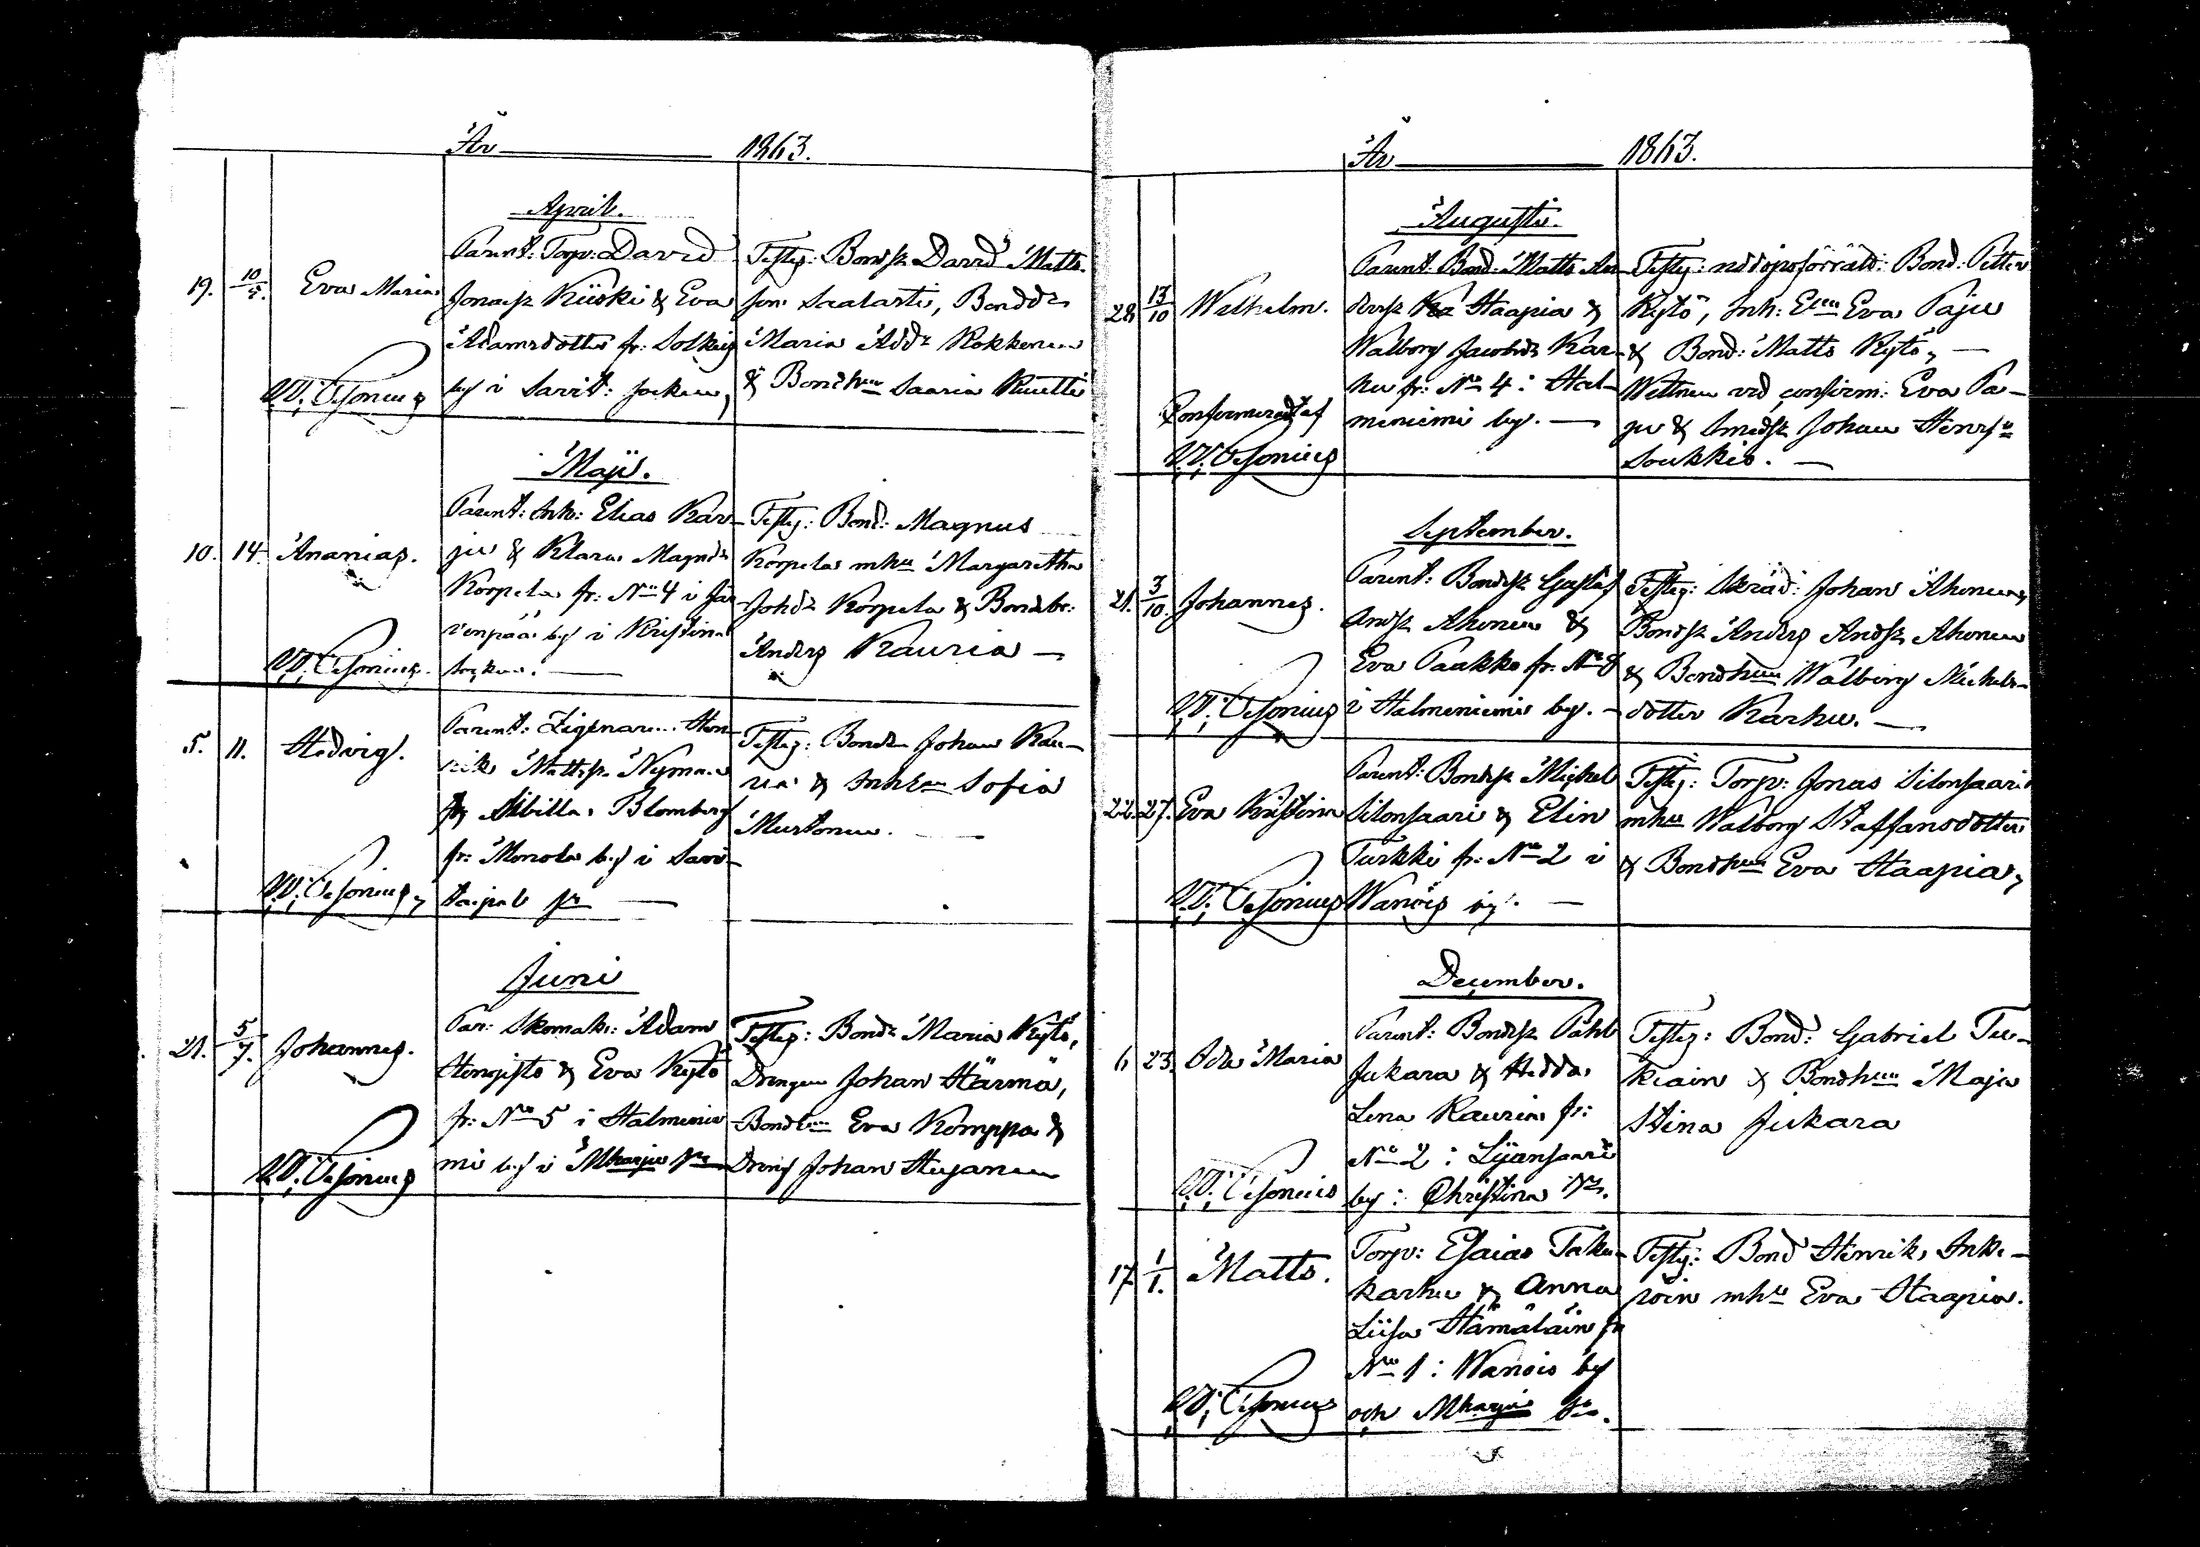 År 1863.
April.
19. 10/5. Eva Maria
Parent: Torp: David
Jonass: Kiiski & Eva
Adamsdotter fr: Solkei
by i Savit: socken,
Testes: Bondss: David Matts-
son Saalasti, Bondd:
Maria Add: Kokkonen
& Bondhun Saaria Kuutti
Maji.
10. 14. Ananias.
Parent: Inh: Elias Kar-
ju & Klara Magnd:
Korpela fr: No 4 i Jär-
venpää by i Kristina
socken.
Testes: Bond: Magnus
Korpela mhu Margaretha
Johd: Korpela & Bondebr:
Anders Kauria
5. 11. Hedvig.
Parent: Zigenaren Hen-
rik Mattss: Nyman
& Sibilla Blomberg
fr: Monola by i Savi-
taipale sn
Testes: Bonden Johan Kau-
ria & Inh Sofia
Murtonen.
Juni
21. 5/7. Johannes.
Par: Skomak: Adam
& Eva Kytö
fr: No 5 i Halmenie-
mi by i Mharju sn
Testes: Bondd: Maria Kytö,
Drengen Johan Härmä,
Eva Komppa &
Dreng Johan
År 1863.
Augusti.
28. 13/10 Wilhelm.
Konfirmerad af
Parent: Bond: Matts An-
derss: Haapia &
Walborg Jacobsd: Kar-
hu fr: No 4 i Hal-
meniemi by.
Testes: nöddopsförrätt: Bond: Petter
Kytö, Inh: Eva Paju
& Bond: Matts Kytö,
Wittnen vid confirm: Eva Pa-
ju & Smedss: Johan Henrsn
Soukkio.
September.
21. 3/10. Johannes.
Parent: Bondess Gustaf
Andss: Ahonen &
Eva Paakko fr: No 8
i Halmeniemi by.
Testes: Johan Ahonen,
Bondss: Anders Andss: Ahonen
& Bondhun Walborg Michels-
dotter Karhu.
22. 27. Eva Kristina
Parent: Bondess Michel
Silonsaari & Elin
Turkki fr: No 2 i
Wanois by.
Testes: Torp: Jonas Silonsaari
mhu Walborg Staffansdotter
& Bondhun Eva Haapia,
December.
6. 23. Oda Maria
Parent: Bondess Påhl
Jukara & Hedda
Lena Kauria fr:
No 2 i Lijansaari
by i Christina sn.
Testes: Bond: Gabriel Tus-
kiain & Bondhun Maja
Stina Jukara
17. 1/1. Matts.
Torp: Esaias Taku-
karhu & Anna
Liisa Hämäläin fr
No 1 i Wanois by
och Mharju sn.
Testes: Bond Henrik Inke-
röin mhu Eva Haapia.